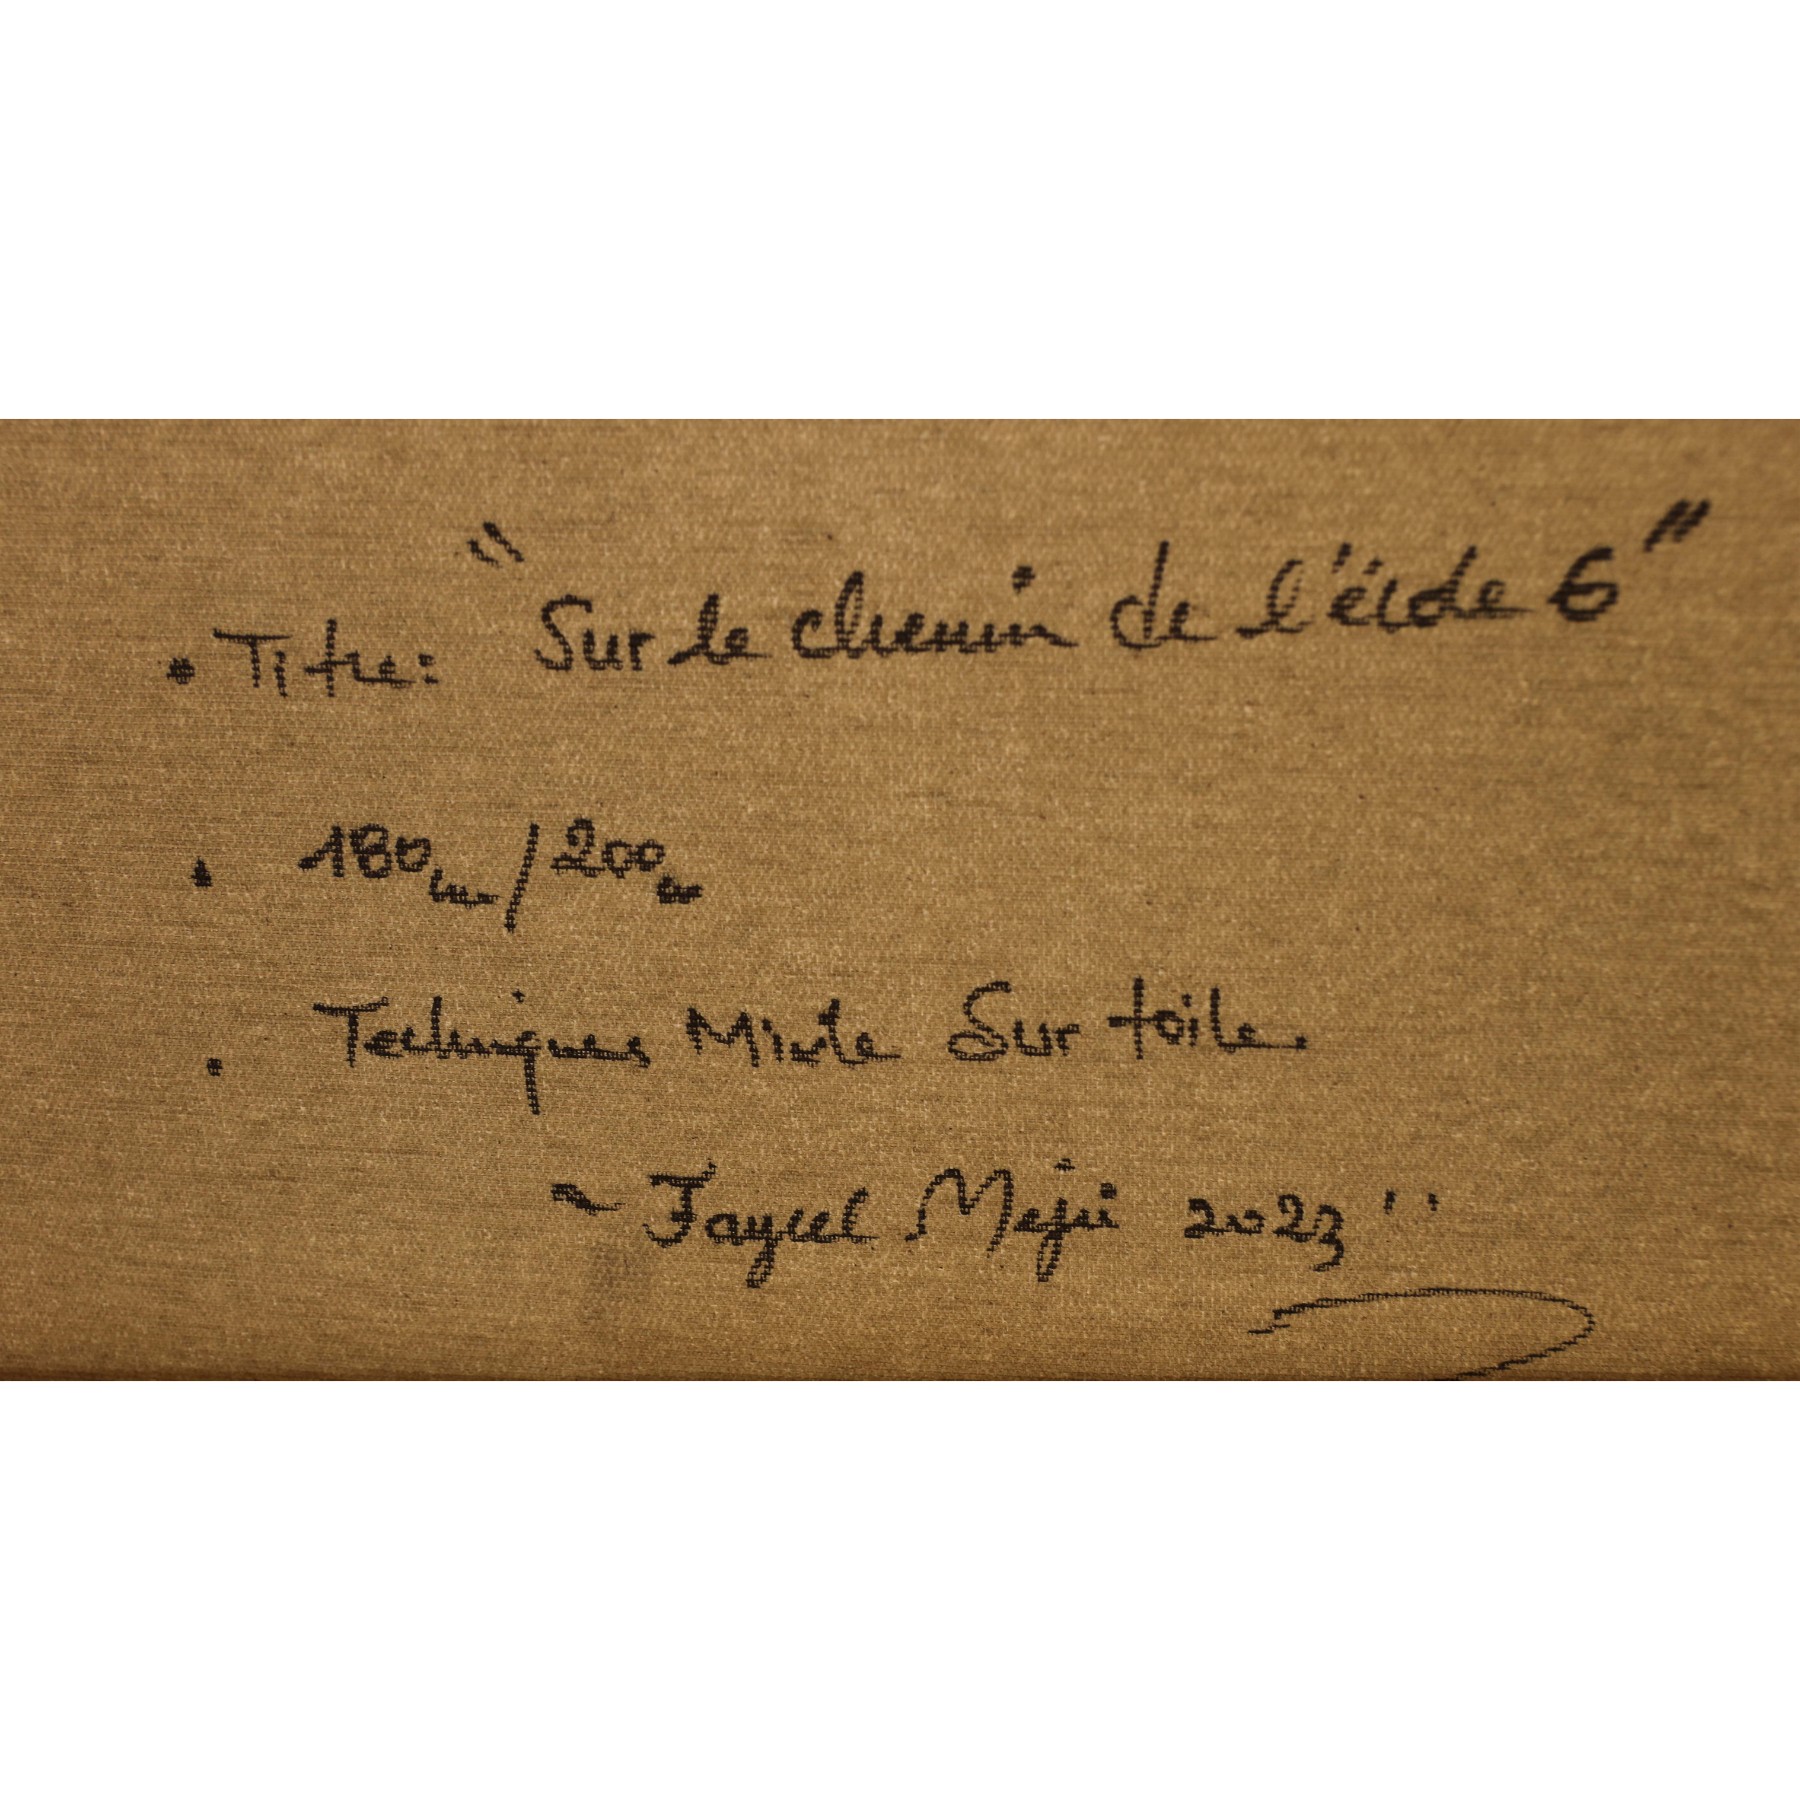 • Titre: "Sur le chemin de l'éïde 6"
• 180cm/200cm
• Techniques Mixte Sur toile.
~ Fayçel Mejri 2023"